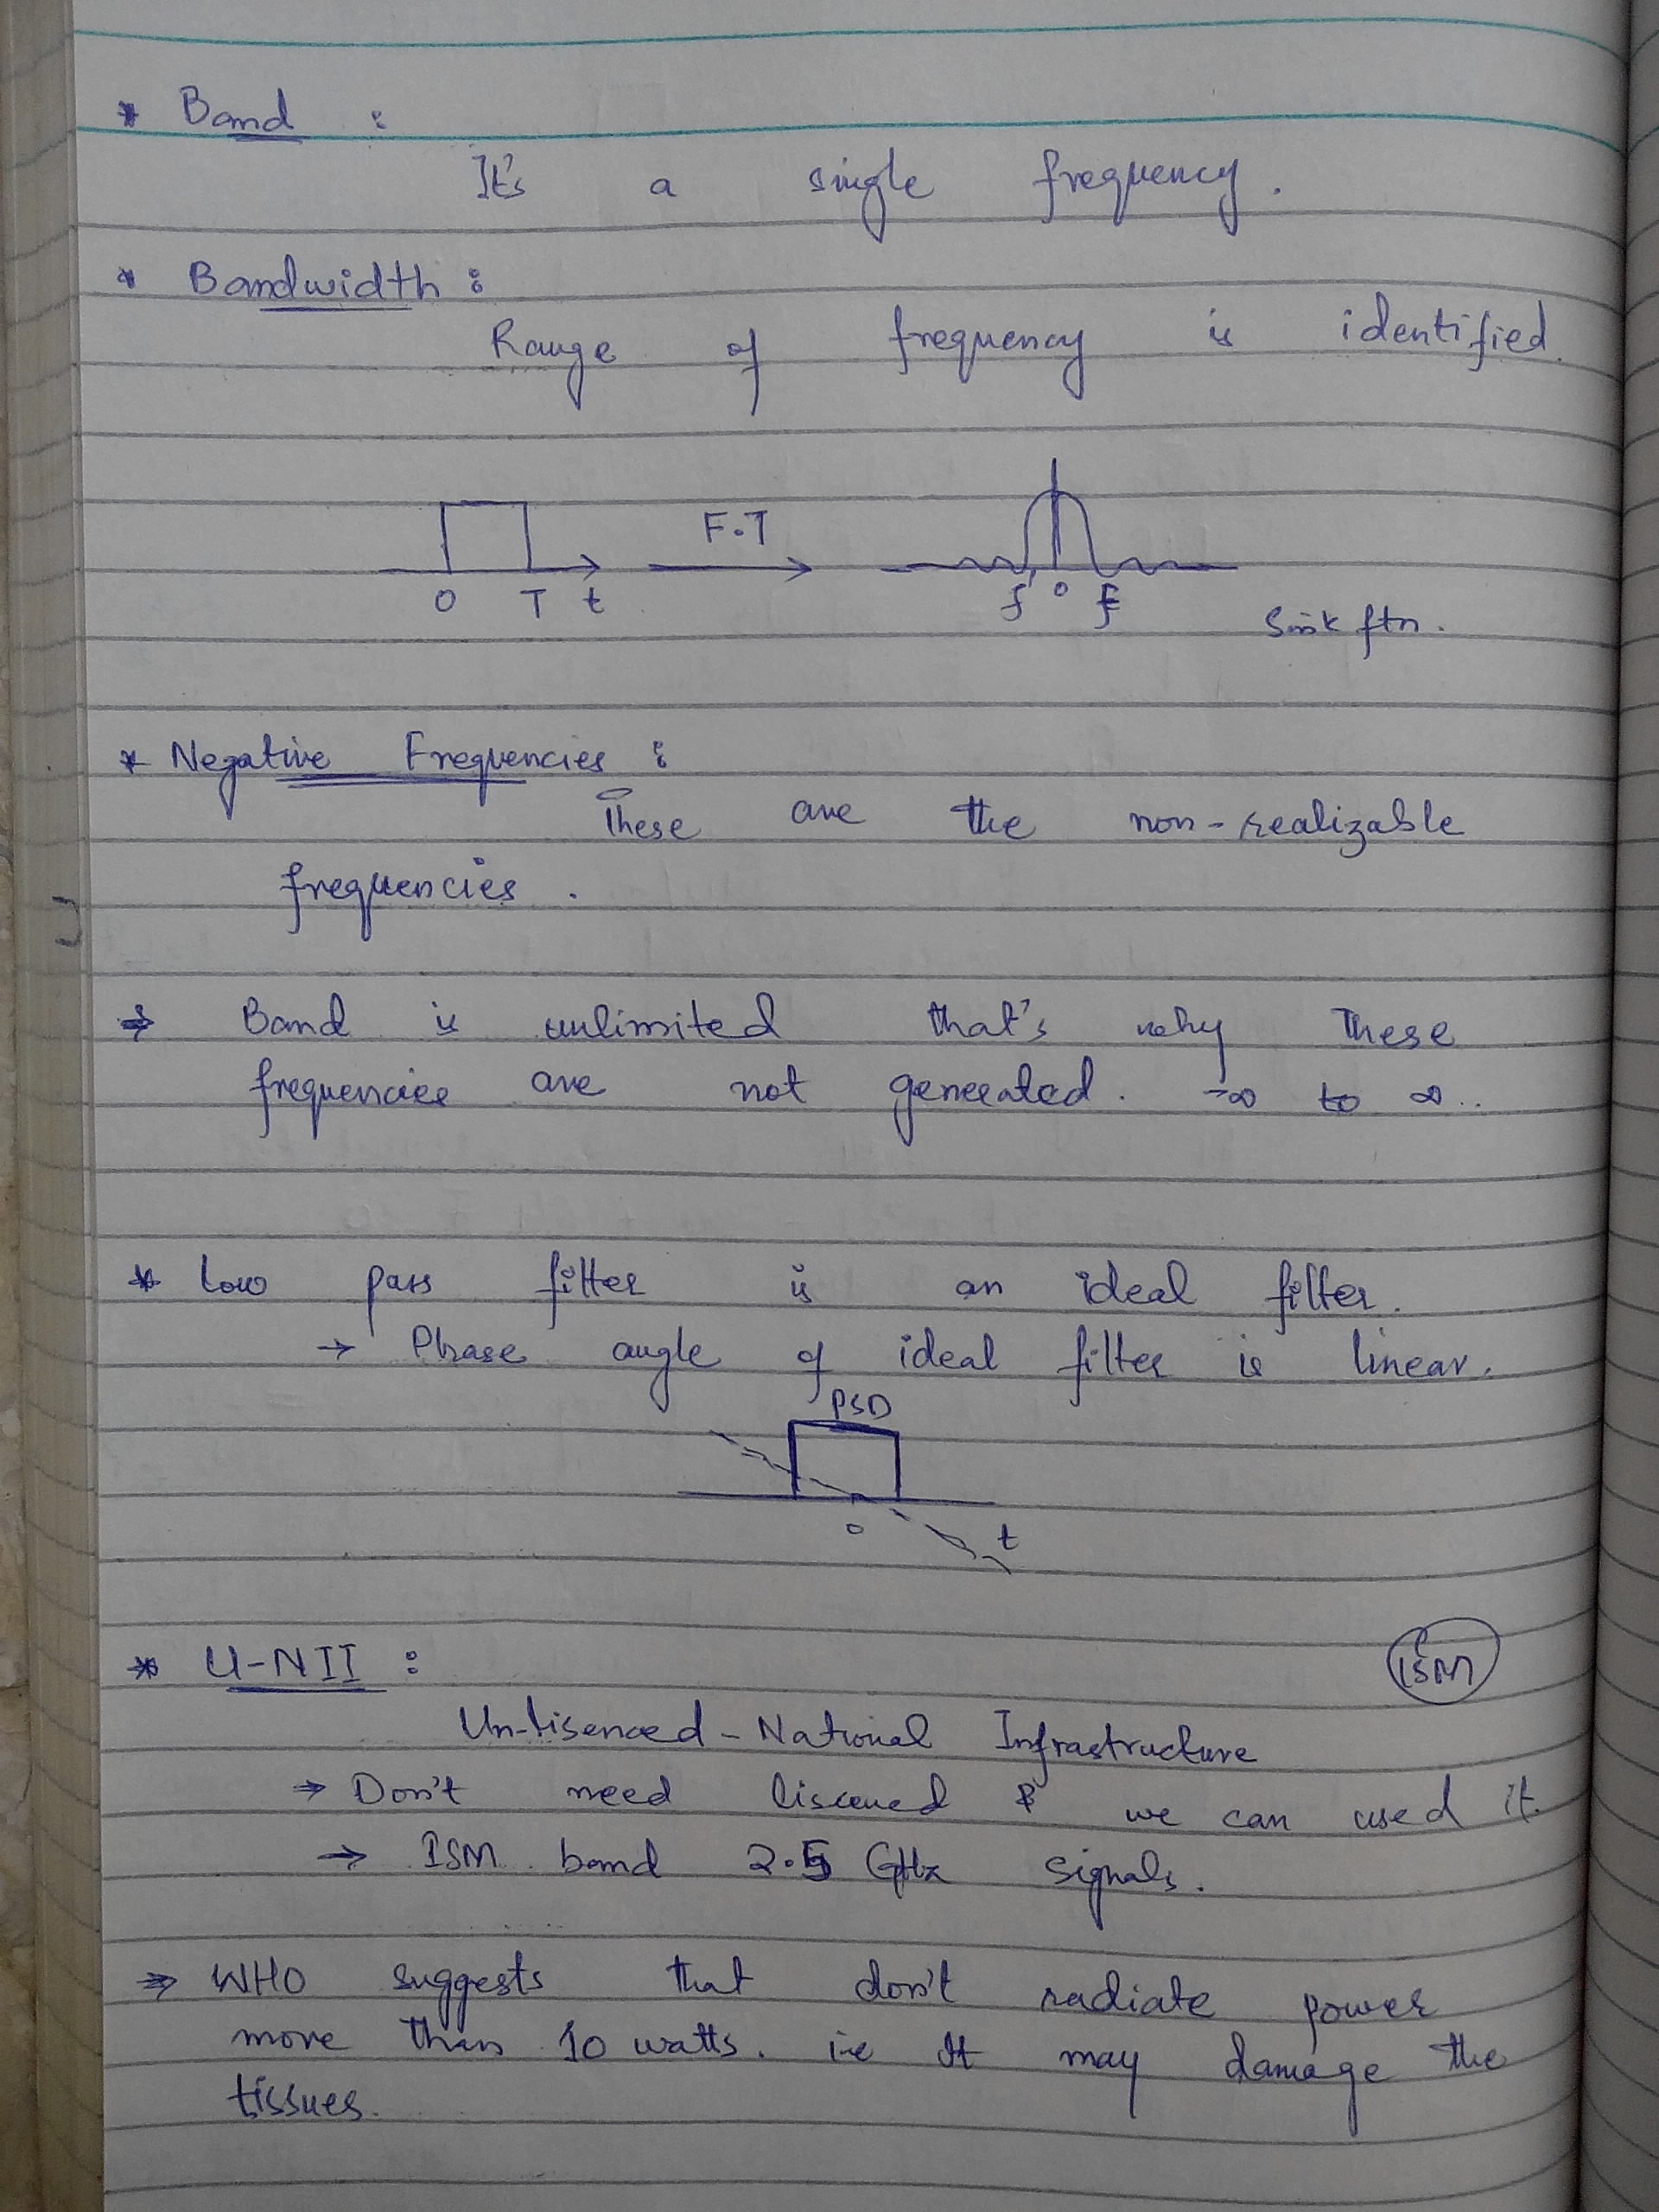 * Band :
It's a single frequency.
* Bandwidth :
Range of frequency is identified.
F.T
0 T t
f' 0 f
Sink ftn.
* Negative Frequencies :
These are the non-realizable
frequencies.
⇒ Band is unlimited that's why These
frequencies are not generated. -∞ to ∞..
* Low pass filter is an ideal filter.
→ Phase angle of ideal filter is linear.
PSD
0 t
* U-NII :
ISM
Un-lisenced-National Infrastructure
⇒ Don't need liscened & we can used it.
→ ISM band 2.5 GHz signals.
⇒ WHO suggests that don't radiate power
more than 10 watts. i.e It may damage the
tissues.